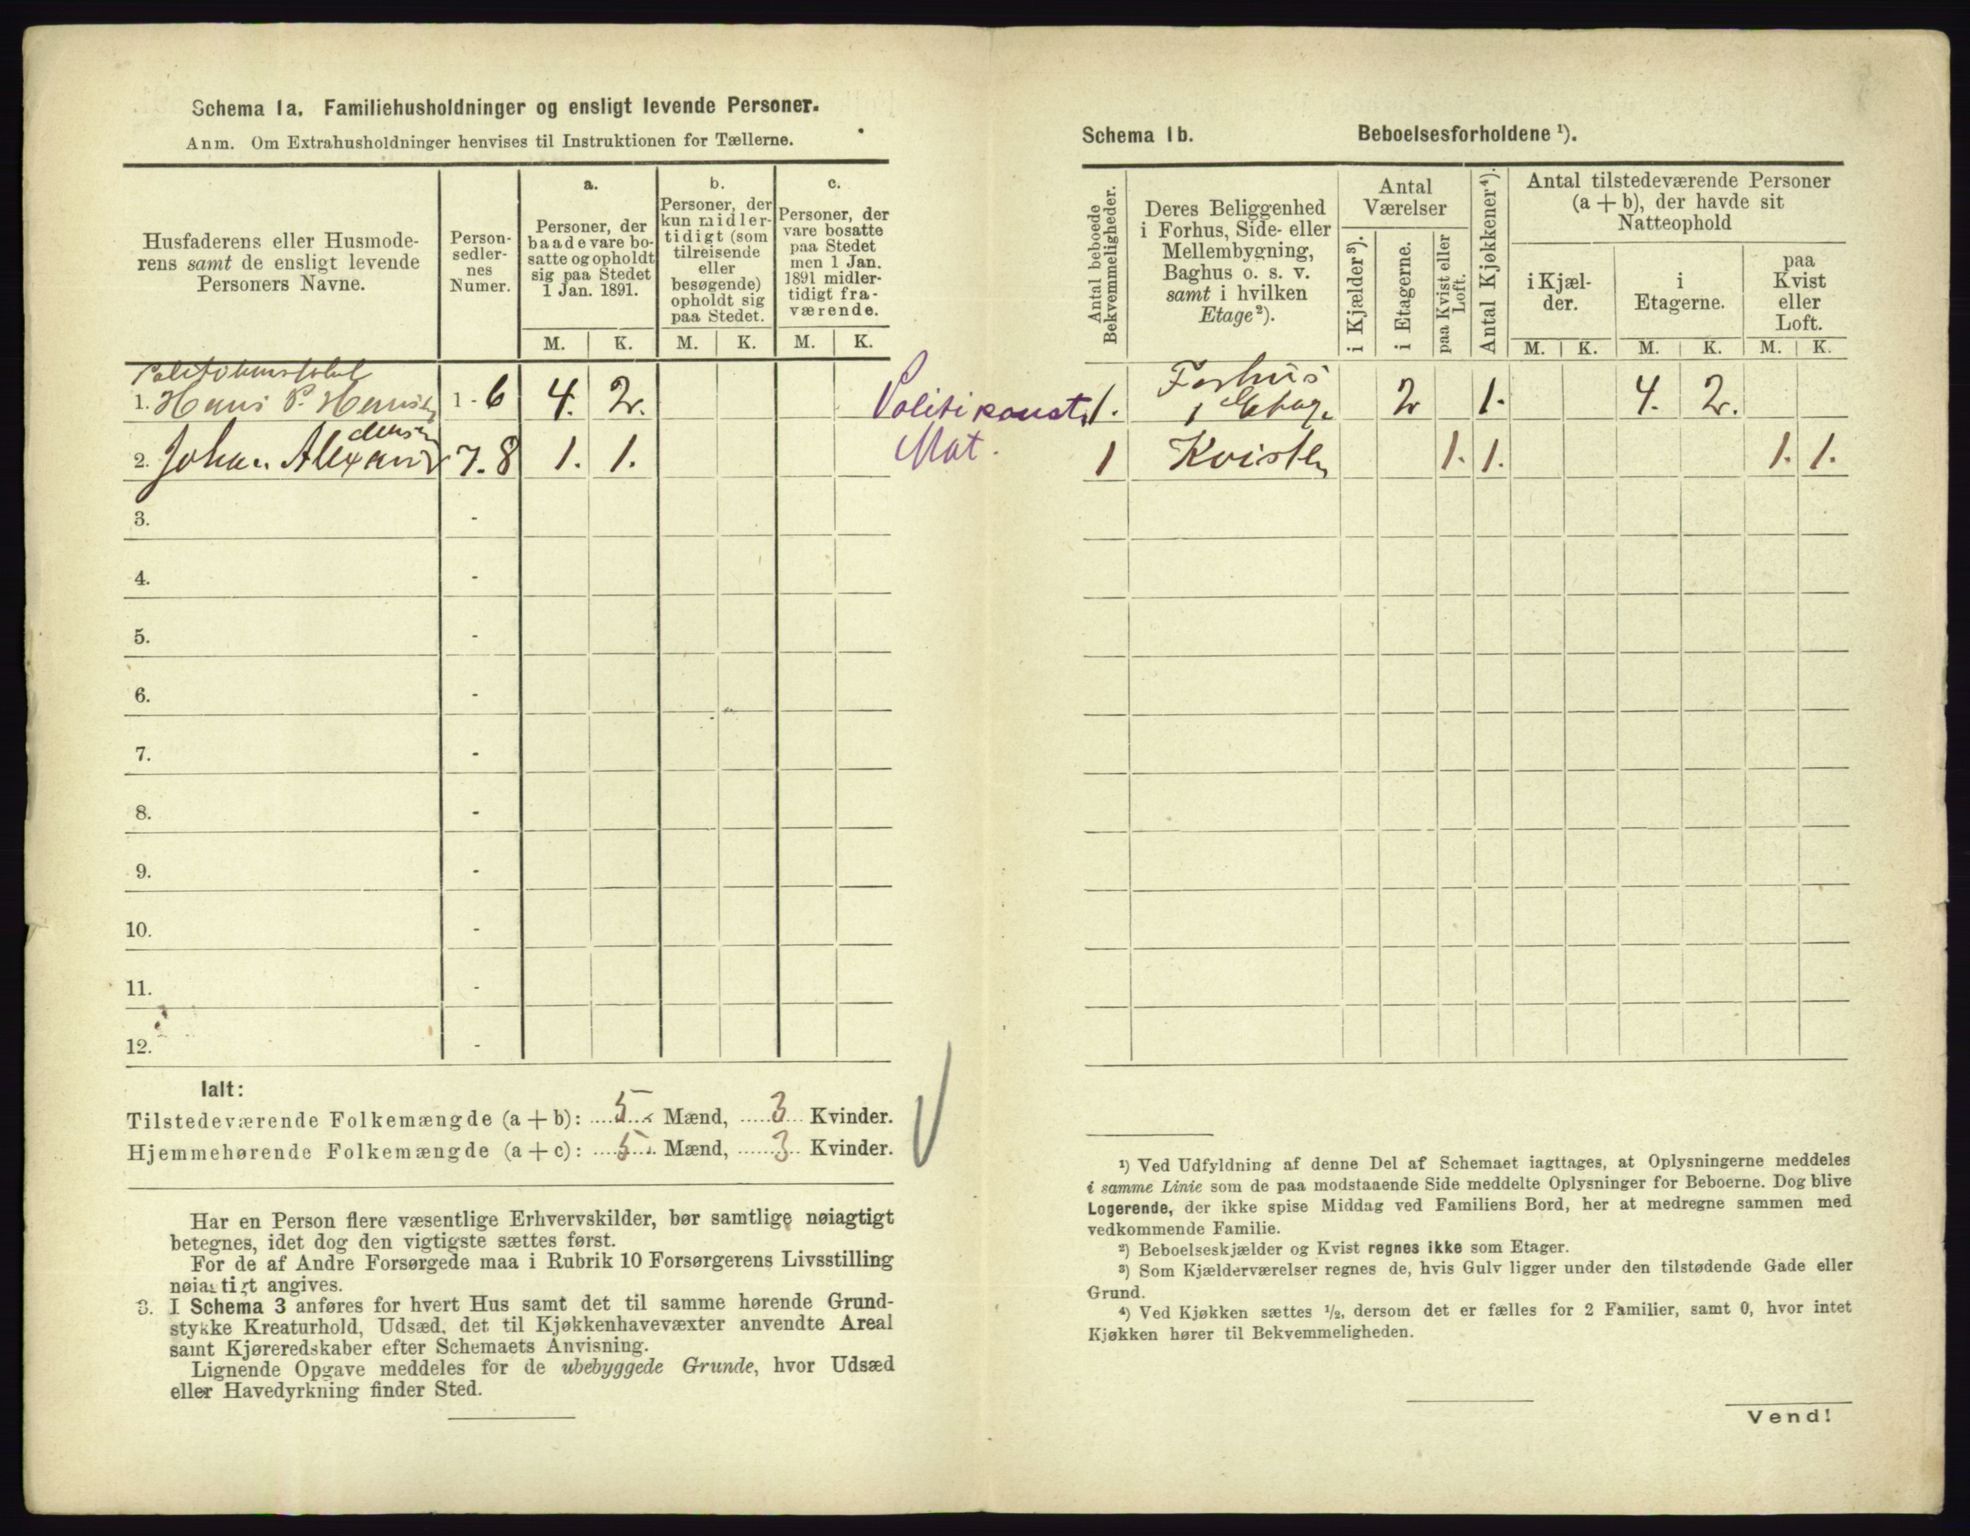 Schema 1a. Familiehusholdninger og ensligt levende Personer.
Anm. Om Extrahusholdninger henvises til Instruktionen for Tællerne.
Husfaderens eller Husmode-
rens samt de ensligt levende
Personers Navne.
Person-
sedler-
nes
Numer.
a.
Personer, der
baade vare bo-
satte og opholdt
sig paa Stedet
1 Jan. 1891.
b.
Personer, der
kun midler-
tidigt (som
tilreisende
eller
besøgende)
opholdt sig
paa Stedet.
c.
Personer, der
vare bosatte
paa Stedet
men 1 Jan.
1891 midler-
tidigt fra-
værende.
M. K. M. K. M. K.
1. Hans P. Hansen 1 - 6 4. 2. Politikonst.
2. Johan Alexandersen 7 - 8 1. 1. Mat.
3. -
4. -
5. -
6. -
7. -
8. -
9. -
10. -
11. -
12. -
Ialt:
Tilstedeværende Folkemængde (a + b): 5 Mænd, 3 Kvinder.
Hjemmehørende Folkemængde (a + c): 5 Mænd, 3 Kvinder.
Har en Person flere væsentlige Erhvervskilder, bør samtlige nøiagtigt
betegnes, idet dog den vigtigste sættes først.
For de af Andre Forsørgede maa i Rubrik 10 Forsørgerens Livsstilling
nøiagtigt angives.
3. I Schema 3 anføres for hvert Hus samt det til samme hørende Grund-
stykke Kreaturhold, Udsæd, det til Kjøkkenhavevæxter anvendte Areal
samt Kjøreredskaber efter Schemaets Anvisning.
Lignende Opgave meddeles for de ubebyggede Grunde, hvor Udsæd
eller Havedyrkning finder Sted.
Schema 1b. Beboelsesforholdene ¹).
Antal beboede
Bekvemmeligheder.
Deres Beliggenhed
i Forhus, Side- eller
Mellembygning,
Baghus o. s. v.
samt i hvilken
Etage²).
Antal
Værelser
i Kjælder³).
i Etagerne.
paa Kvist eller
Loft.
Antal Kjøkkener⁴).
Antal tilstedeværende Personer
(a + b), der havde sit
Natteophold
i Kjæl-
der.
i
Etagerne.
paa
Kvist
eller
Loft.
M. K. M. K. M. K.
1. Forhus
1 Etage 2 1. 4. 2.
1 Kvisten 1. 1. 1. 1.
¹) Ved Udfyldning af denne Del af Schemaet iagttages, at Oplysningerne meddeles
i samme Linie som de paa modstaaende Side meddelte Oplysninger for Beboerne. Dog blive
Logerende, der ikke spise Middag ved Familiens Bord, her at medregne sammen med
vedkommende Familie.
²) Beboelseskjælder og Kvist regnes ikke som Etager.
³) Som Kjælderværelser regnes de, hvis Gulv ligger under den tilstødende Gade eller
Grund.
⁴) Ved Kjøkken sættes ½, dersom det er fælles for 2 Familier, samt 0, hvor intet
Kjøkken hører til Bekvemmeligheden.
Vend!